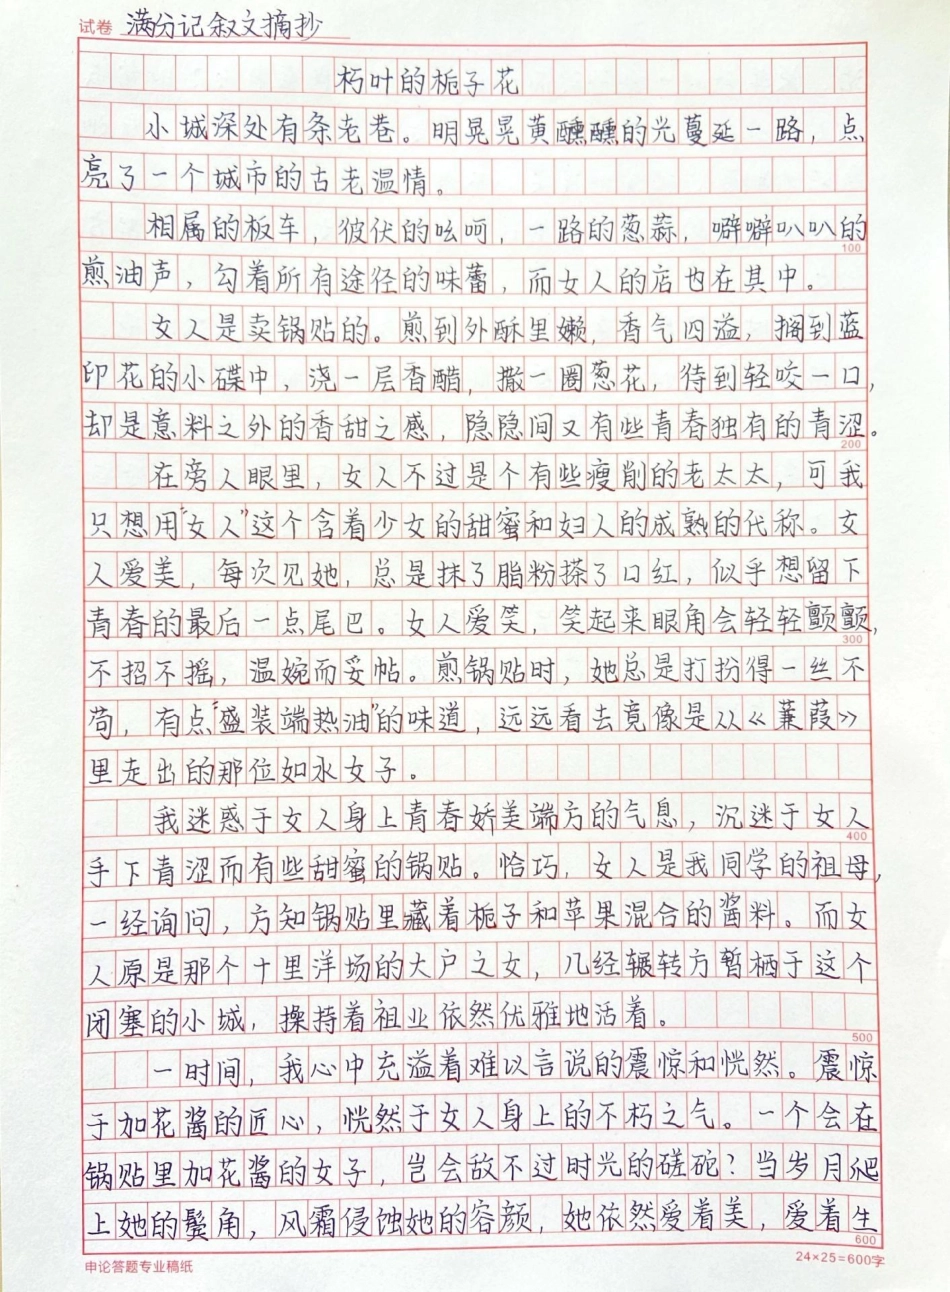 试卷 满分记叙文摘抄
朽叶的栀子花
小城深处有条老巷。明晃晃黄醺醺的光蔓延一路，点
亮了一个城市的古老温情。
相属的板车，彼伏的吆呵，一路的葱蒜，噼噼叭叭的
100
煎油声，勾着所有途径的味蕾，而女人的店也在其中。
女人是卖锅贴的。煎到外酥里嫩，香气四溢，搁到蓝
印花的小碟中，浇一层香醋，撒一圈葱花，待到轻咬一口，
却是意料之外的香甜之感，隐隐间又有些青春独有的青涩。
200
在旁人眼里，女人不过是个有些瘦削的老太太，可我
只想用“女人”这个含着少女的甜蜜和妇人的成熟的代称。女
人爱美，每次见她，总是抹了脂粉搽了口红，似乎想留下
青春的最后一点尾巴。女人爱笑，笑起来眼角会轻轻颤颤，
300
不招不摇，温婉而妥帖。煎锅贴时，她总是打扮得一丝不
苟，有点“盛装端热油”的味道，远远看去竟像是从《蒹葭》
里走出的那位如水女子。
我迷惑于女人身上青春娇美端方的气息，沉迷于女人
400
手下青涩而有些甜蜜的锅贴。恰巧，女人是我同学的祖母，
一经询问，方知锅贴里藏着栀子和苹果混合的酱料。而女
人原是那个十里洋场的大户之女，几经辗转方暂栖于这个
闭塞的小城，操持着祖业依然优雅地活着。
500
一时间，我心中充溢着难以言说的震惊和恍然。震惊
于加花酱的匠心，恍然于女人身上的不朽之气。一个会在
锅贴里加花酱的女子，岂会敌不过时光的磋砣？当岁月爬
上她的鬓角，风霜侵蚀她的容颜，她依然爱着美，爱着生
600
申论答题专业稿纸 24×25=600字